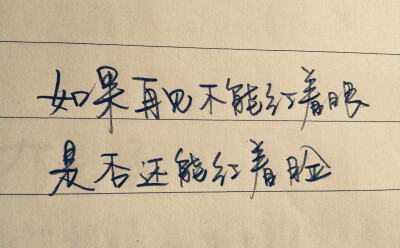 如果再见不能红着眼
是否还能红着脸